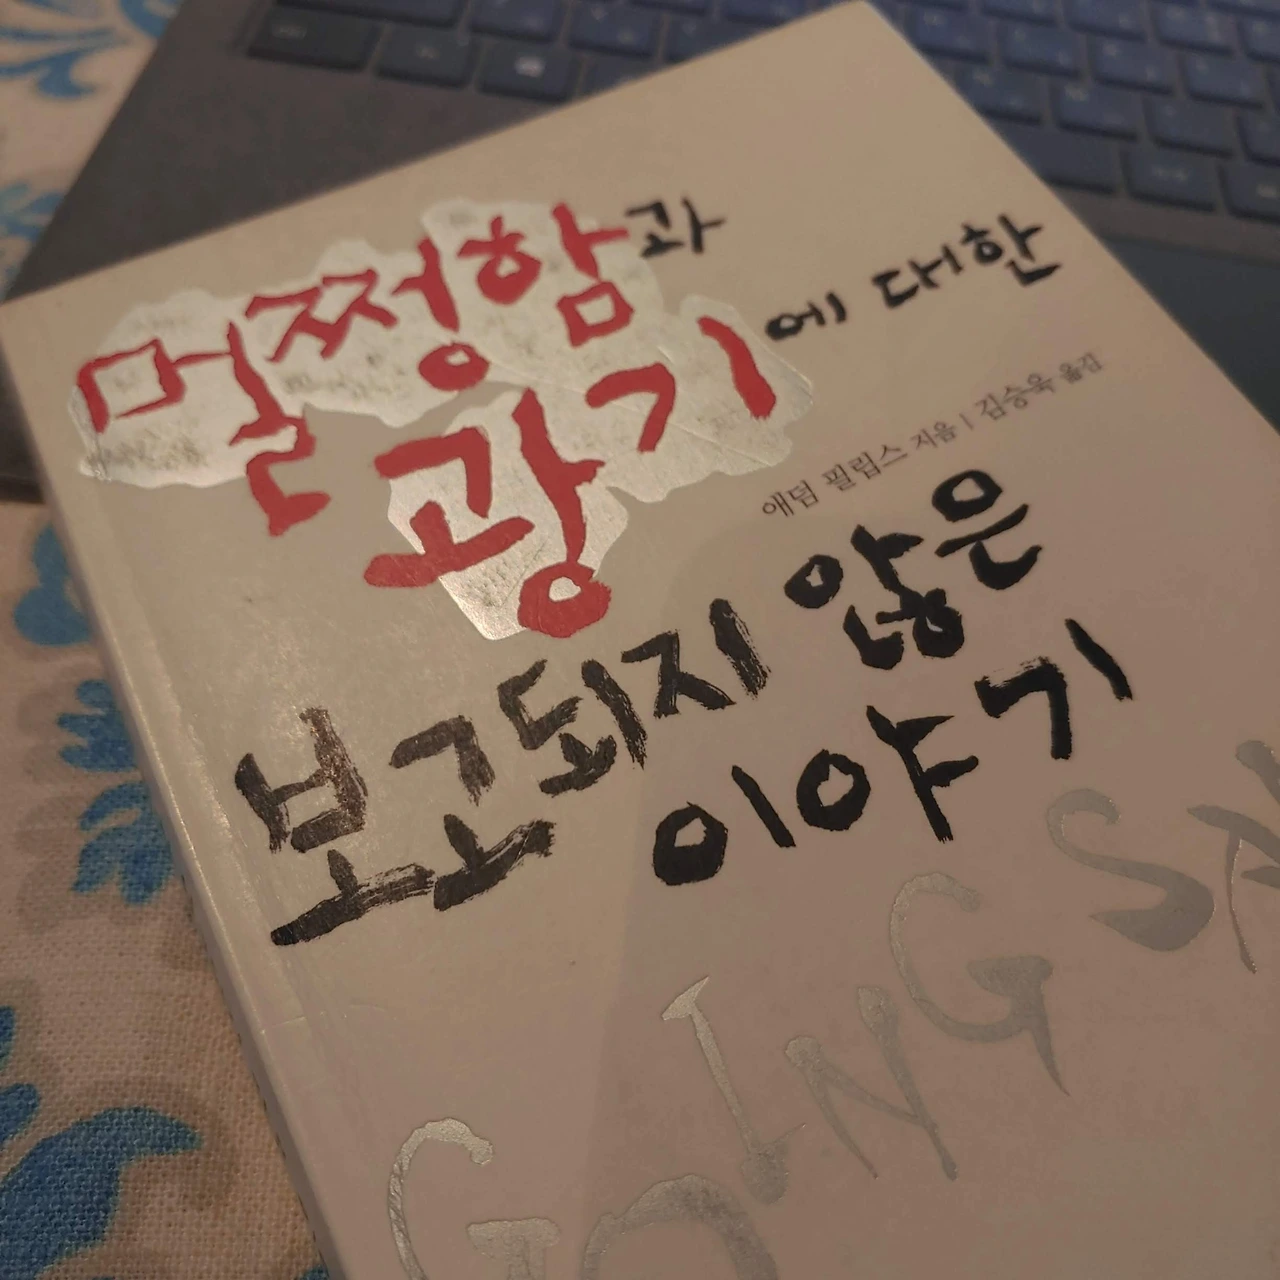 멀쩡함과
광기에 대한
애덤 필립스 지음 | 김승욱 옮김
보고되지 않은
이야기
GOING SA